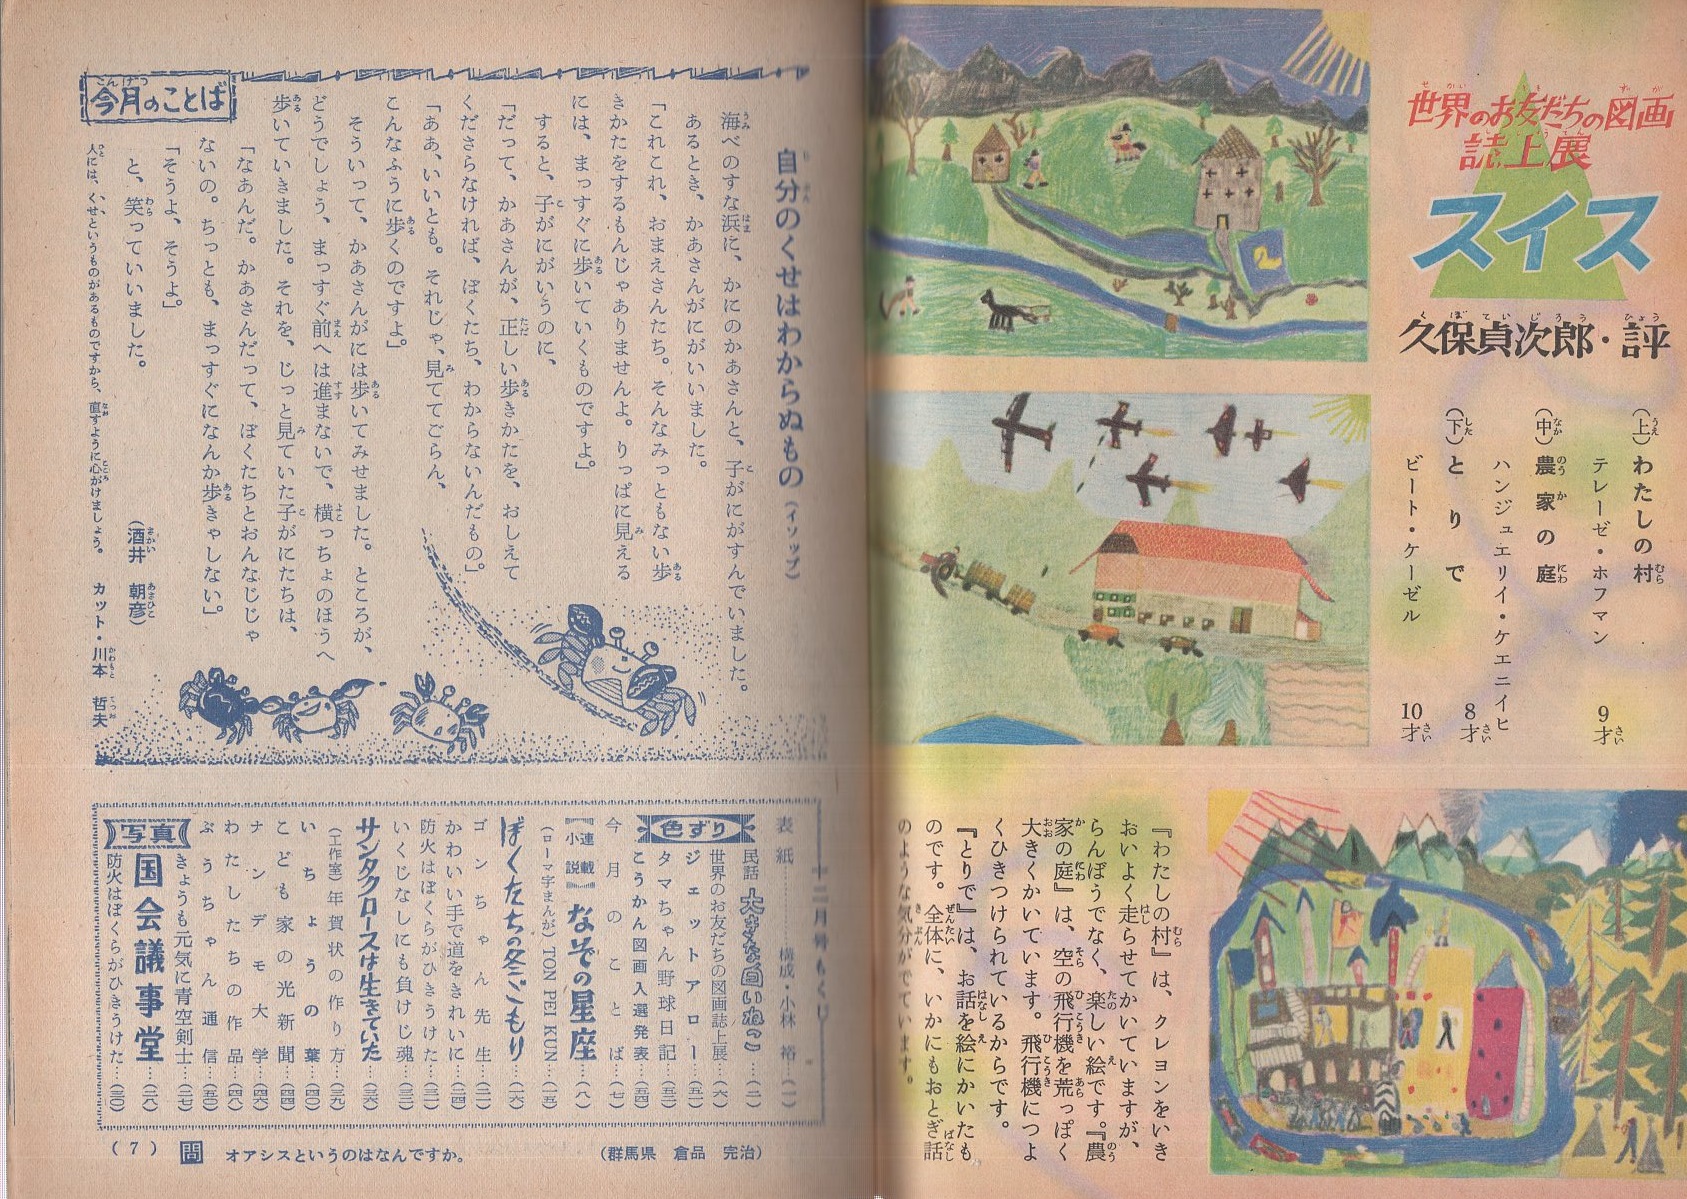 世界のお友だちの図画
誌上展
スイス
久保貞次郎・評
（上）わたしの村
テレーゼ・ホフマン 9才
（中）農家の庭
ハンジュエリイ・ケエニイヒ 8才
（下）とりで
ビート・ケーゼル 10才
『わたしの村』は、クレヨンをいき
おいよく走らせてかいていますが、
らんぼうでなく、楽しい絵です。『農
家の庭』は、空の飛行機を荒っぽく
大きくかいています。飛行機につよ
くひきつけられているからです。
『とりで』は、お話を絵にかいたも
のです。全体に、いかにもおとぎ話
のような気分がでています。
今月のことば
自分のくせはわからぬもの（イソップ）
海べのすな浜に、かにのかあさんと、子がにがすんでいました。
あるとき、かあさんがにがいいました。
「これこれ、おまえさんたち。そんなみっともない歩
きかたをするもんじゃありませんよ。りっぱに見える
には、まっすぐに歩いていくものですよ」
すると、子がにがいうのに、
「だって、かあさんが、正しい歩きかたを、おしえて
くださらなければ、ぼくたち、わからないんだもの」
「ああ、いいとも。それじゃ、見ててごらん、
こんなふうに歩くのですよ」
そういって、かあさんがには歩いてみせました。ところが、
どうでしょう、まっすぐ前へは進まないで、横っちょのほうへ
歩いていきました。それを、じっと見ていた子がにたちは、
「なあんだ。かあさんだって、ぼくたちとおんなじじゃ
ないの。ちっとも、まっすぐになんか歩きゃしない」
「そうよ、そうよ」
と、笑っていいました。
（酒井 朝彦）
人には、くせというものがあるものですから、直すように心がけましょう。 カット・川本 哲夫
十二月号もくじ
表紙……構成・小林 裕…（一）
民話 大きな白いねこ…（二）
色ずり
世界のお友だちの図画誌上展…（六）
ジェットアロー…（五一）
タマちゃん野球日記…（五三）
こうかん図画入選発表…（五四）
今月のことば…（七）
連載小説 なぞの星座…（八）
（ローマ字まんが）TON PEI KUN…（一五）
ぼくたちの冬ごもり…（一六）
ゴンちゃん先生…（二一）
かわいい手で道をきれいに…（二四）
防火はぼくらがひきうけた…（三一）
いくじなしにも負けじ魂…（三三）
サンタクロースは生きていた…（三六）
（工作室）年賀状の作り方…（三九）
いちょうの葉…（四〇）
こども家の光新聞…（四四）
ナンデモ大学…（四六）
わたしたちの作品…（四八）
ぶうちゃん通信…（五〇）
きょうも元気に青空剣士…（二七）
写真
国会議事堂…（二八）
防火はぼくらがひきうけた…（三〇）
（7） 問 オアシスというのはなんですか。 （群馬県 倉品 完治）